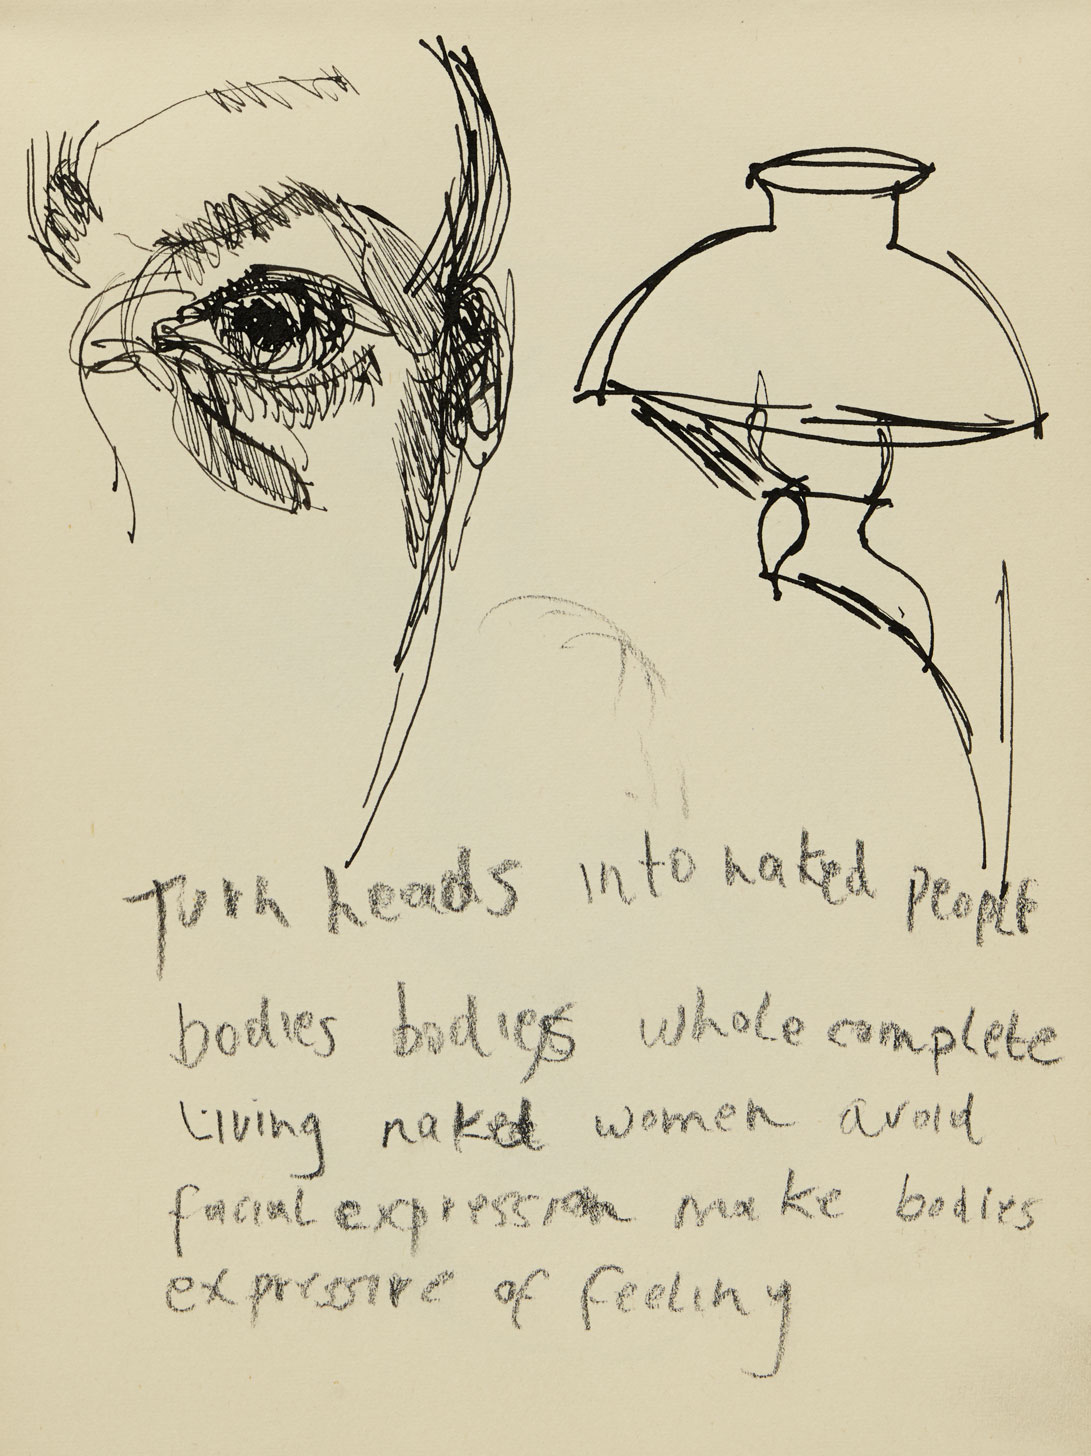 Turn heads into naked people
bodies bodies whole complete
Living naked women avoid
facial expression make bodies
expressive of feeling